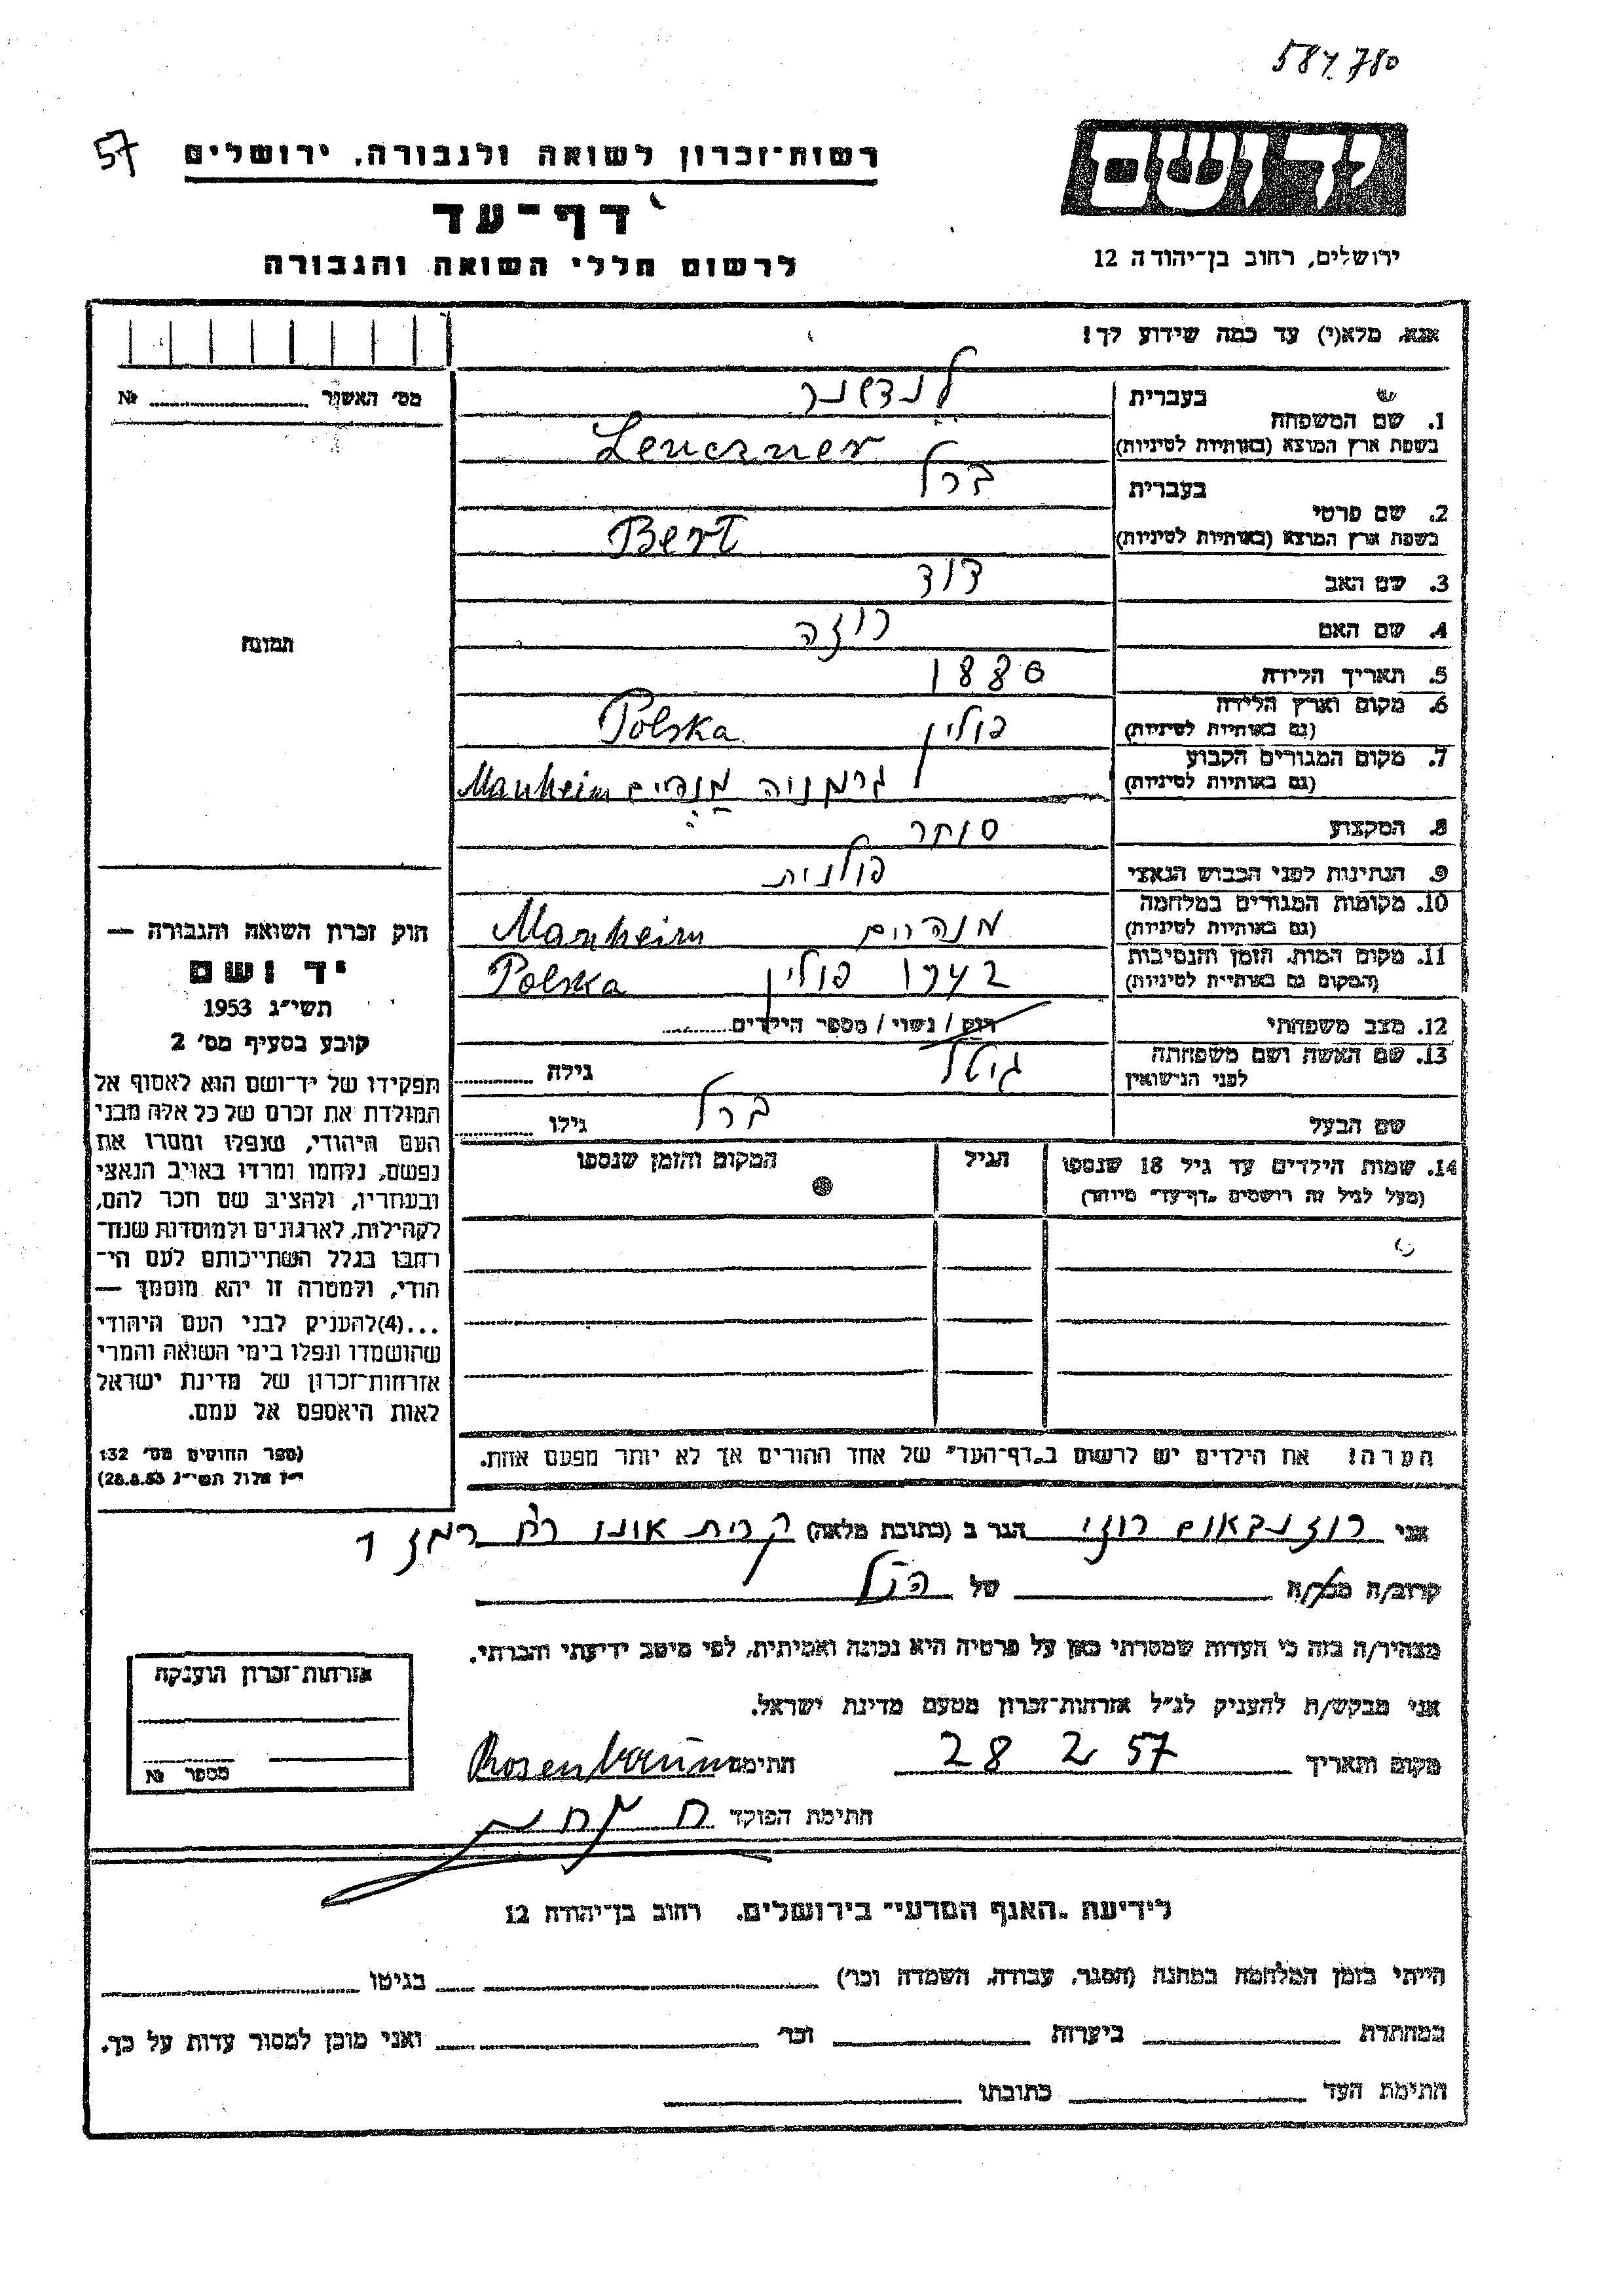 584780
57
רשות-זכרון לשואה ולגבורה, ירושלים
דף-עד
לרשום חללי השואה והגבורה
יד ושם
ירושלים, רחוב בן-יהודה 12
אנא, מלא(י) עד כמה שידוע לך!
מס' האשור № 
1. שם המשפחה
בעברית
לנדשנר
בשפת ארץ המוצא (באותיות לטיניות)
Lenczner
2. שם פרטי
בעברית
ברל
בשפת ארץ המוצא (באותיות לטיניות)
Berl
3. שם האב
דוד
4. שם האם
רוזה
5. תאריך הלידה
1880
6. מקום וארץ הלידה
(גם באותיות לטיניות)
פולין Polska
7. מקום המגורים הקבוע
(גם באותיות לטיניות)
גרמניה מנהיים Manheim
8. המקצוע
סוחר
9. הנתינות לפני הכבוש הנאצי
פולנית
10. מקומות המגורים במלחמה
(גם באותיות לטיניות)
מנהיים Manheim
11. מקום המות, הזמן והנסיבות
(המקום גם באותיות לטיניות)
1942 פולין Polska
12. מצב משפחתי
רווק / נשוי / מספר הילדים
13. שם האשה ושם משפחתה
לפני הנישואין
גיטל
גילה
שם הבעל
ברל
גילו
14. שמות הילדים עד גיל 18 שנספו
(מעל לגיל זה רושמים "דף-עד" מיוחד)
הגיל
המקום והזמן שנספו
הערה! את הילדים יש לרשום ב"דף-העד" של אחד ההורים אך לא יותר מפעם אחת.
תמונה
חוק זכרון השואה והגבורה —
יד ושם
תשי"ג 1953
קובע בסעיף מס' 2
תפקידו של יד-ושם הוא לאסוף אל
המולדת את זכרם של כל אלה מבני
העם היהודי, שנפלו ומסרו את
נפשם, נלחמו ומרדו באויב הנאצי
ובעוזריו, ולהציב שם וזכר להם,
לקהילות, לארגונים ולמוסדות שנח-
רבו בגלל השתייכותם לעם הי-
הודי, ולמטרה זו יהא מוסמך —
...(4)להעניק לבני העם היהודי
שהושמדו ונפלו בימי השואה והמרי
אזרחות-זכרון של מדינת ישראל
לאות היאספם אל עמם.
(ספר החוקים מס' 132
י"ז אלול תשי"ג 28.8.53)
אני רוזנבאום רוזי הגר ב (כתובת מלאה) קרית אונו רח רמז 1
קרוב/ה מכר/ה של הנ"ל
מצהיר/ה בזה כי העדות שמסרתי כאן על פרטיה היא נכונה ואמיתית, לפי מיטב ידיעתי והכרתי.
אני מבקש/ת להעניק לנ"ל אזרחות-זכרון מטעם מדינת ישראל.
מקום ותאריך 28 2 57 חתימה Rosenbaum
חתימת הפוקד
אזרחות-זכרון הוענקה
מספר №
לידיעת "האגף המדעי" בירושלים, רחוב בן-יהודה 12
הייתי בזמן המלחמה במחנה (הסגר, עבודה, השמדה וכו') בגיטו
במחתרת ביערות וכו' ואני מוכן למסור עדות על כך.
חתימת העד כתובתו